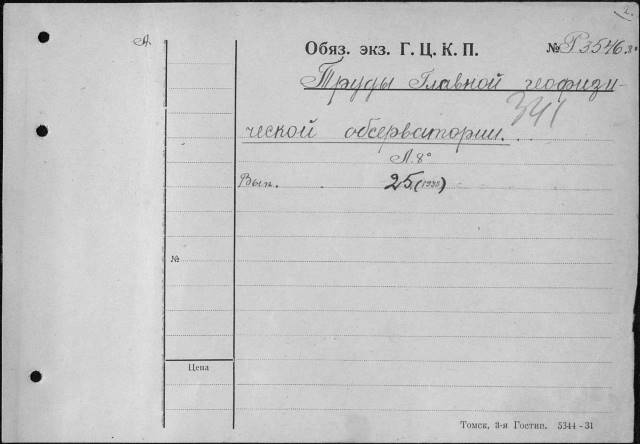 1.
А.
Обяз. экз. Г. Ц. К. П. № Р3546
Труды Главной геофизи-
341
ческой обсерватории.
Л. 8°
Вып. 25 (1938)
№
Цена
Томск, 3-я Гостип. 5344-31